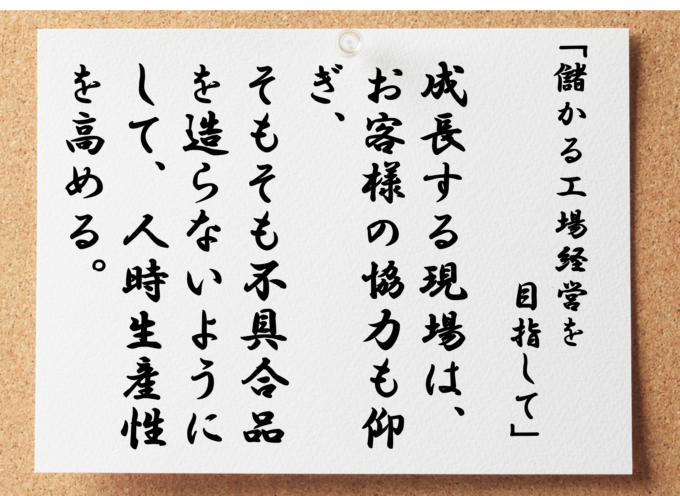 「儲かる工場経営を
目指して」
成長する現場は、
お客様の協力も仰
ぎ、
そもそも不具合品
を造らないように
して、人時生産性
を高める。